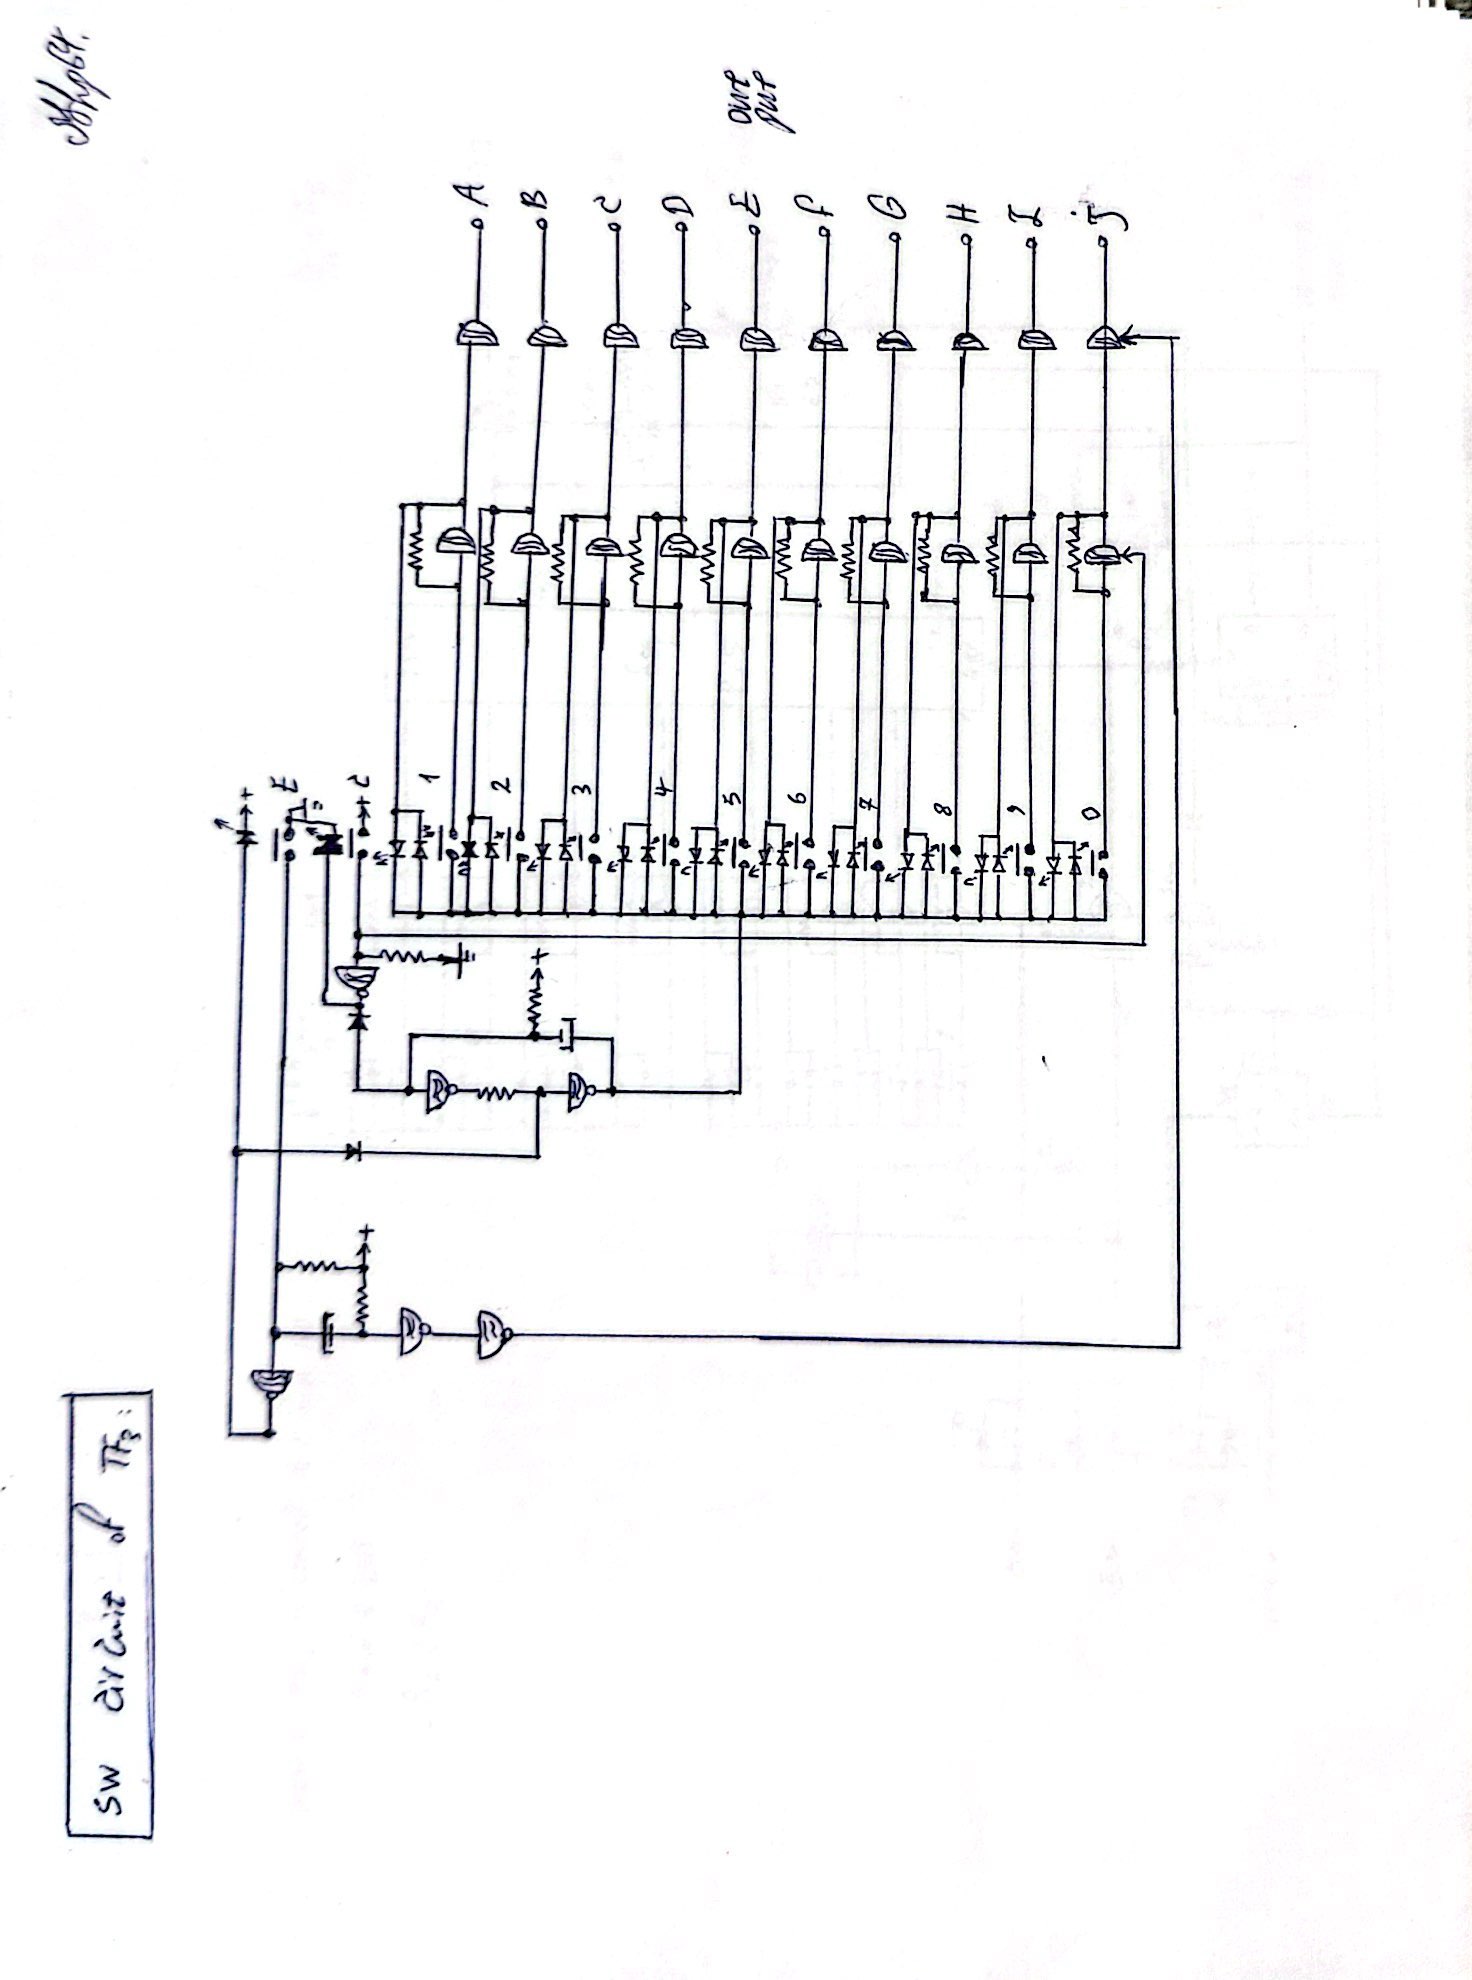 SW circuit of TF3:
+
E
+
+ C
1
2
+
3
4
5
6
7
8
9
0
A
B
C
D
E
F
G
H
I
j
out
put